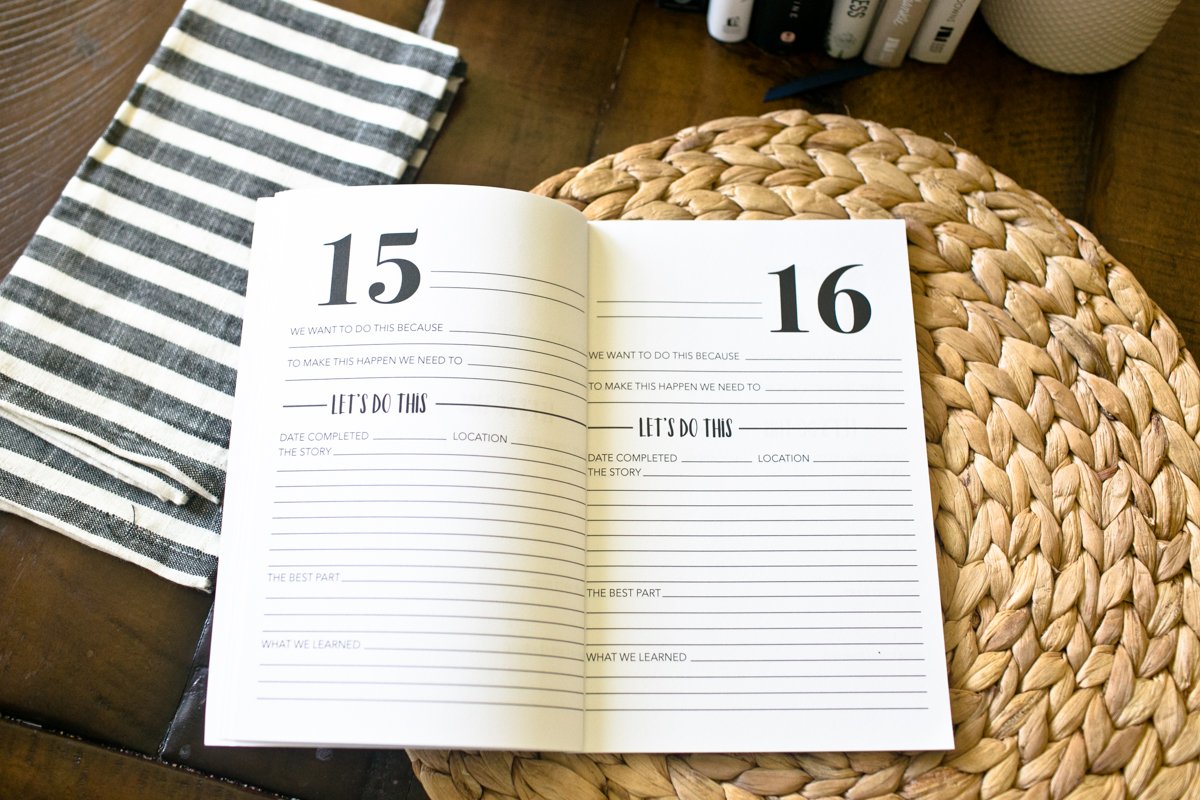 15
WE WANT TO DO THIS BECAUSE
TO MAKE THIS HAPPEN WE NEED TO
LET'S DO THIS
DATE COMPLETED LOCATION
THE STORY
THE BEST PART
WHAT WE LEARNED
16
WE WANT TO DO THIS BECAUSE
TO MAKE THIS HAPPEN WE NEED TO
LET'S DO THIS
DATE COMPLETED LOCATION
THE STORY
THE BEST PART
WHAT WE LEARNED